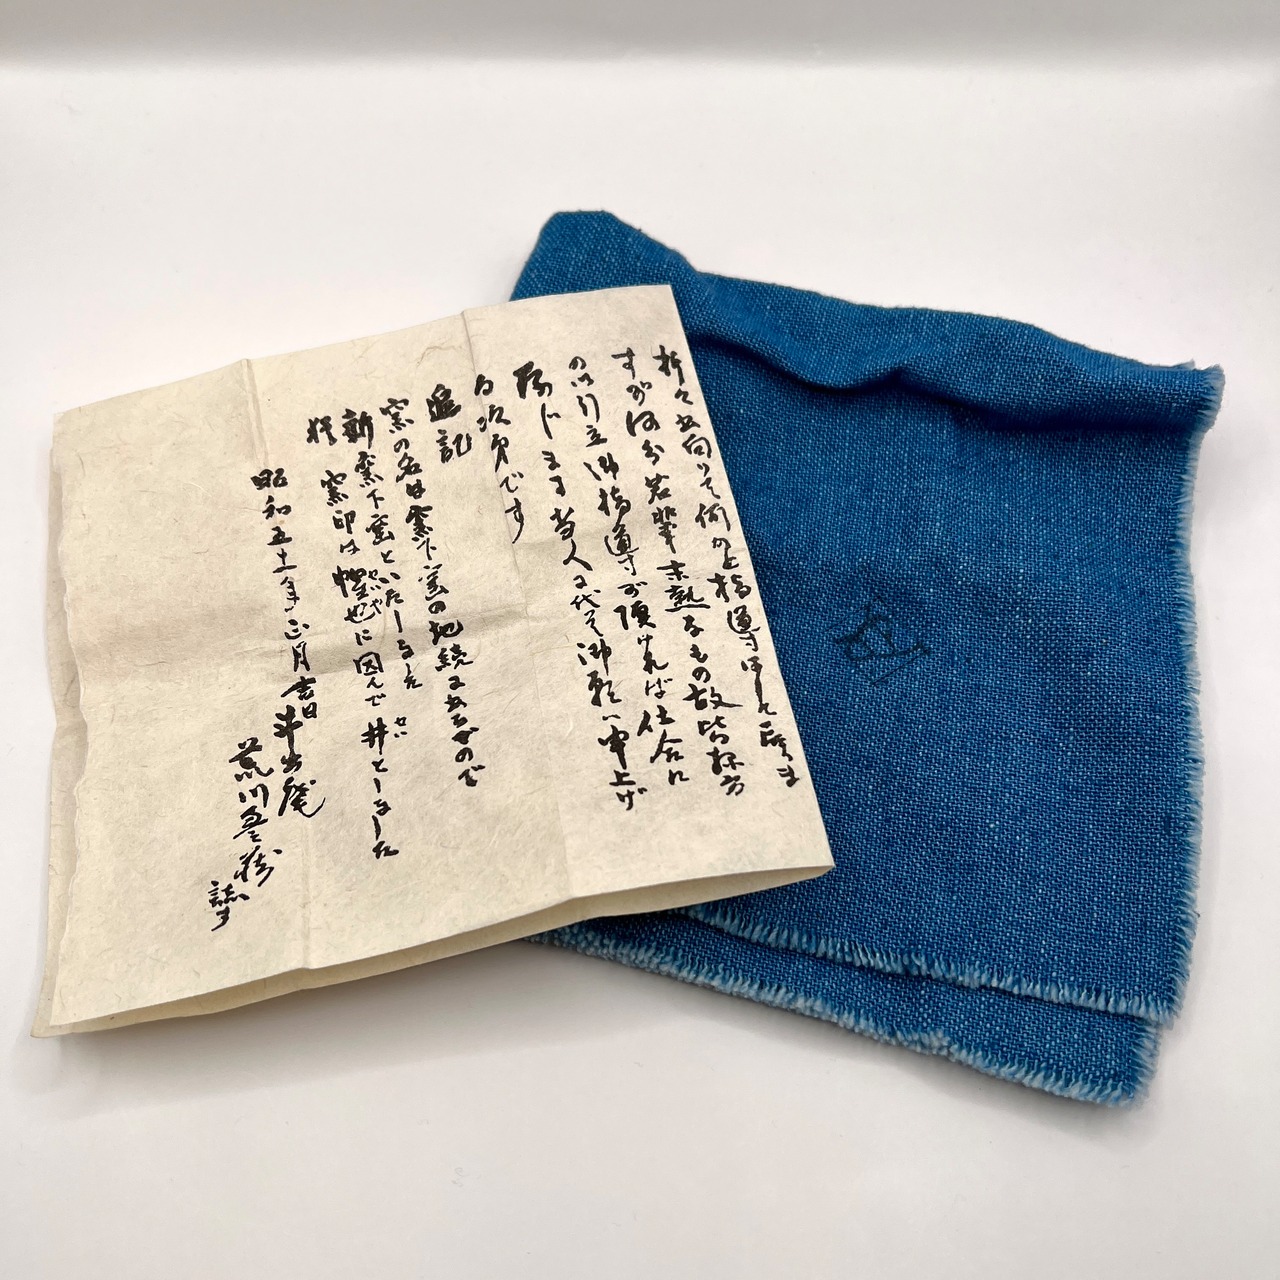 折々出向いて何かと指導はして居りま
すが何分若輩未熟なるもの故皆様方
の御引立御指導が頂ければ仕合に
存じます当人に代って御願い申上げ
る次第です
追記
窯の名は窯下窯の地続にあるので
新窯下窯といたしました
猶 窯印は に因んで井としました
昭和五十一年正月吉日
荒川豊蔵
誌す